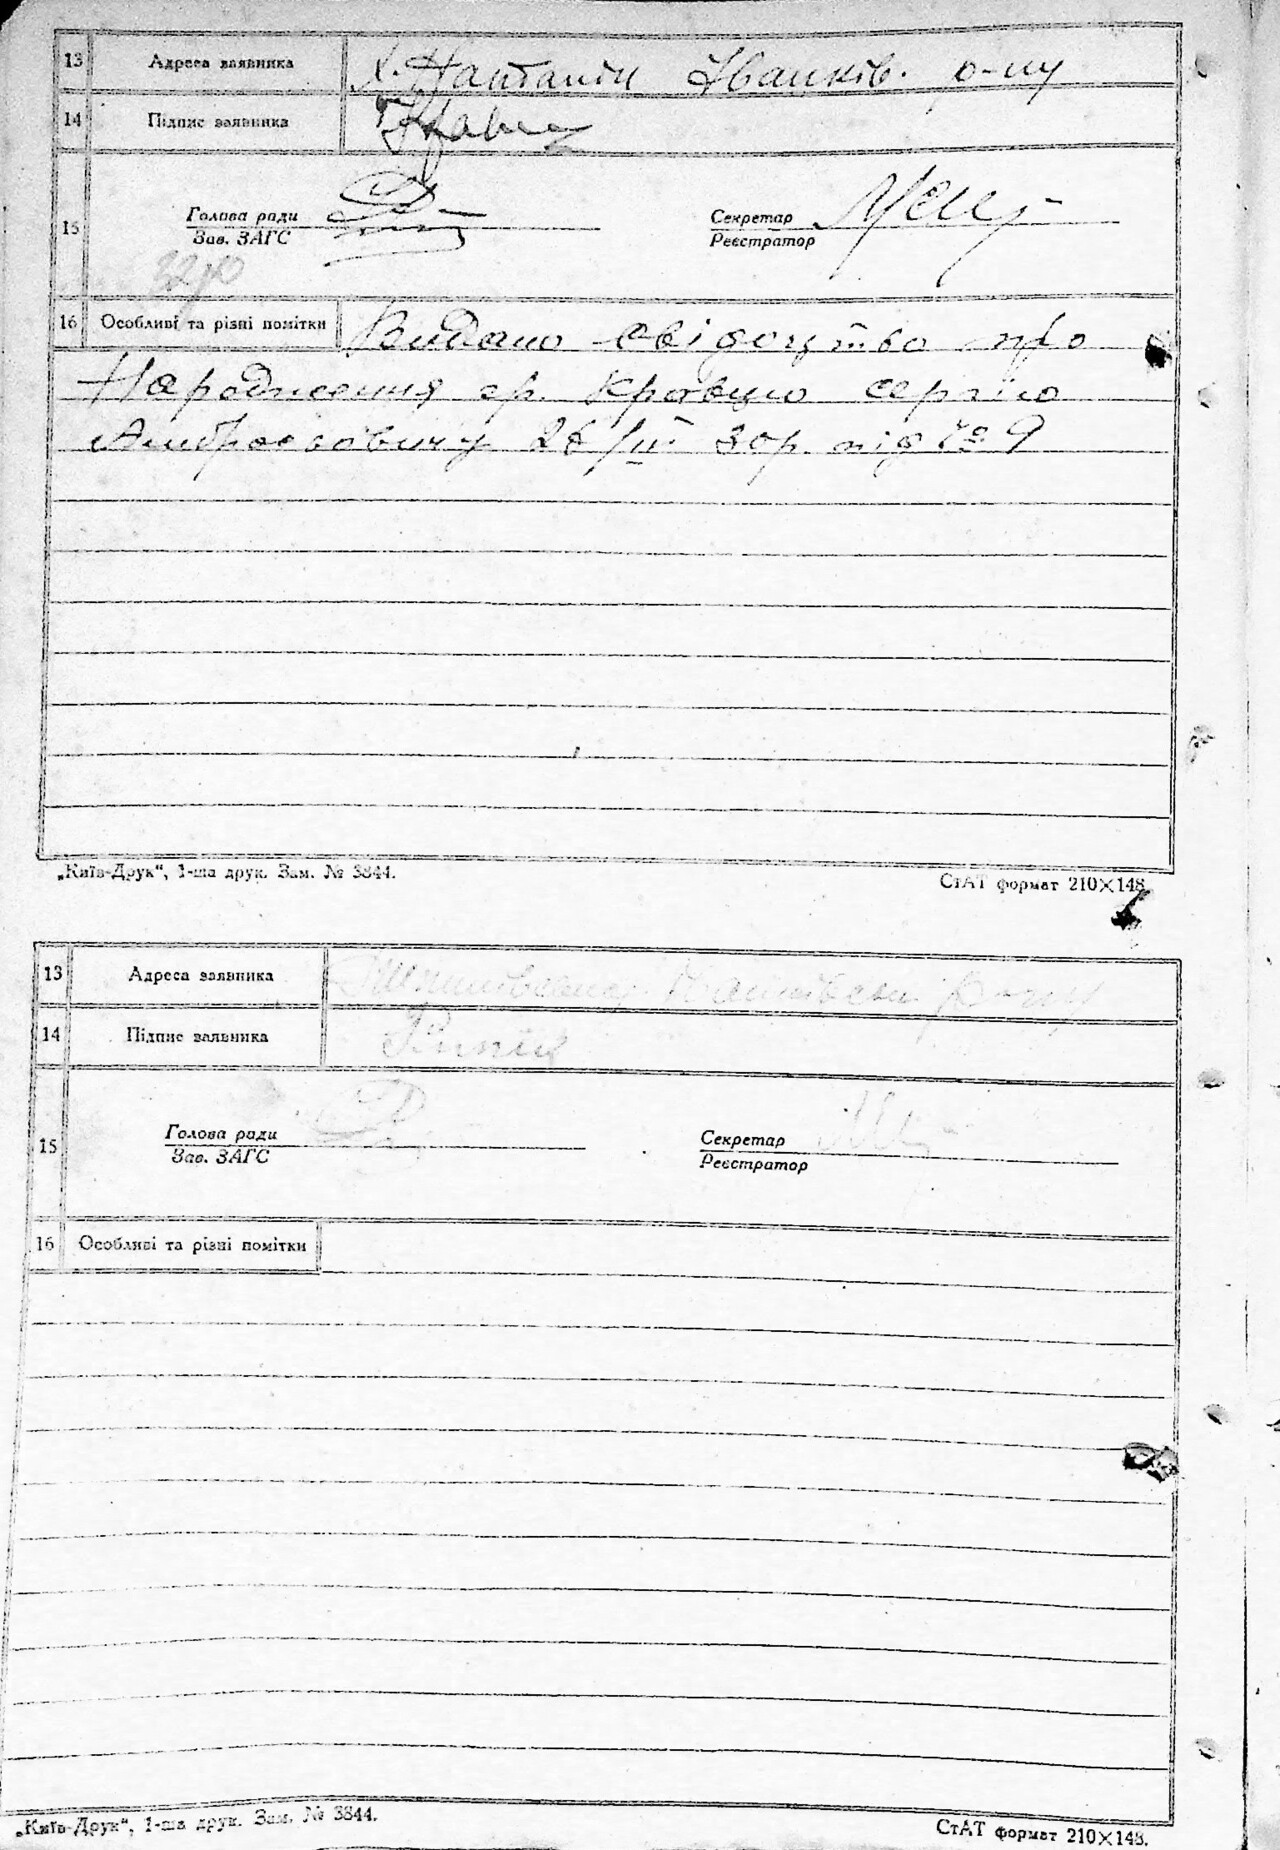 13 Адреса заявника х. Иванків. р-ну
14 Підпис заявника
15 Голова ради Секретар
Зав. ЗАГС Реєстратор
16 Особливі та різні помітки Видано свідоцтво про
Народження гр. Кравцю Сергїю
Амбросьовичу 26/III 30р. під № 9
„Київ-Друк“, 1-ша друк. Зам. № 3844. СтАТ формат 210×148.
13 Адреса заявника
14 Підпис заявника
15 Голова ради Секретар
Зав. ЗАГС Реєстратор
16 Особливі та різні помітки
„Київ-Друк“, 1-ша друк. Зам. № 3844. СтАТ формат 210×148.